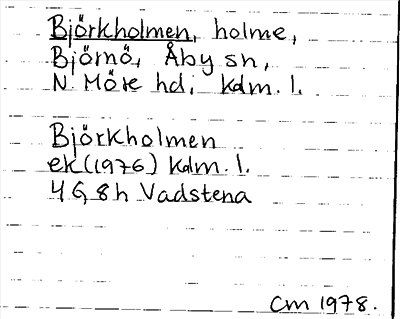 Björkholmen, holme,
Björnö, Åby sn,
N. Möre hd, Kdm. l.
Björkholmen
ek (1976) Kdm. l.
4G 8h Vadstena
CM 1978.